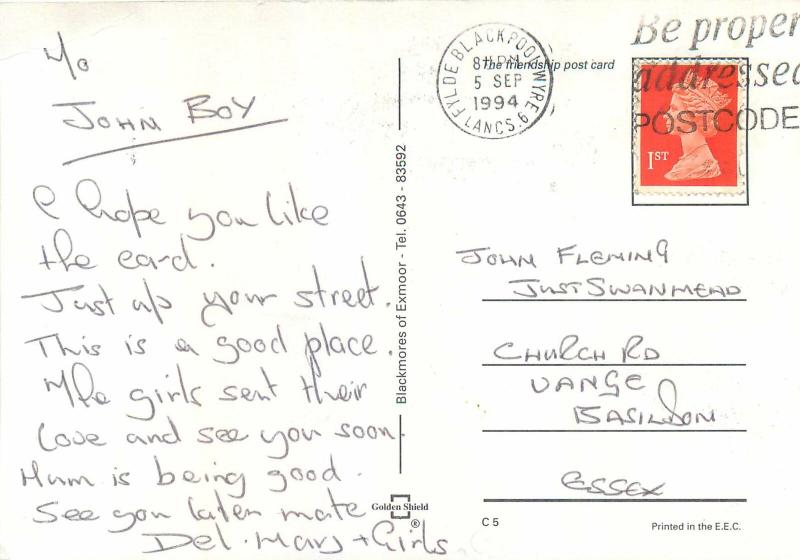 To
JOHN BOY
I hope you like
the card.
Just up your street.
This is a good place.
The girls sent their
love and see you soon.
Mum is being good.
See you later mate
Del. Mary + Girls
Blackmores of Exmoor - Tel. 0643 - 83592
Golden Shield
®
The friendship post card
FYLDE BLACKPOOL WYRE
5 SEP
1994
LANCS. 6
Be proper
addressed
POSTCODE
1ST
JOHN FLEMING
JUST SWANMEAD
CHURCH RD
VANGE
BASILDON
ESSEX
C 5
Printed in the E.E.C.